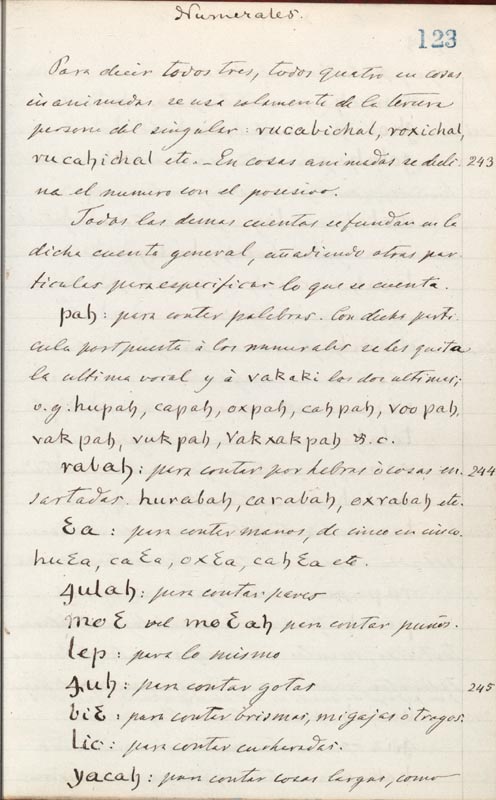 Numerales.
123
Para decir todos tres, todos quatro en cosas
inanimadas se usa solamente de la tercera
persona del singular: rucabichal, roxichal,
rucahichal etc. - En cosas animadas se decli- 243
na el numero con el posesivo.
Todas las demas cuentas se fundan en la
dicha cuenta general, añadiendo otras par-
ticulas para especificar lo que se cuenta.
pah: para contar palabras. Con dicha parti-
cula postpuesta à los numerales se les quita
la ultima vocal y à vakaki las dos ultimas;
v.g. hupah, capah, oxpah, cahpah, voopah,
vakpah, vukpah, vakxakpah &.c.
rabah: para contar por hebras ò cosas en- 244
sartadas. hurabah, carabah, oxrabah etc.
ꜫa: para contar manos, de cinco en cinco.
huꜫa, caꜫa, oxꜫa, cahꜫa etc.
ꜭulah: para contar pares
moꜫ vel moꜫah para contar puños.
lep: para lo mismo
ꜭuh: para contar gotas 245
biꜫ: para contar brismas, migajas ò tragos.
lic: para contar cucharadas.
yacah: para contar cosas largas, como